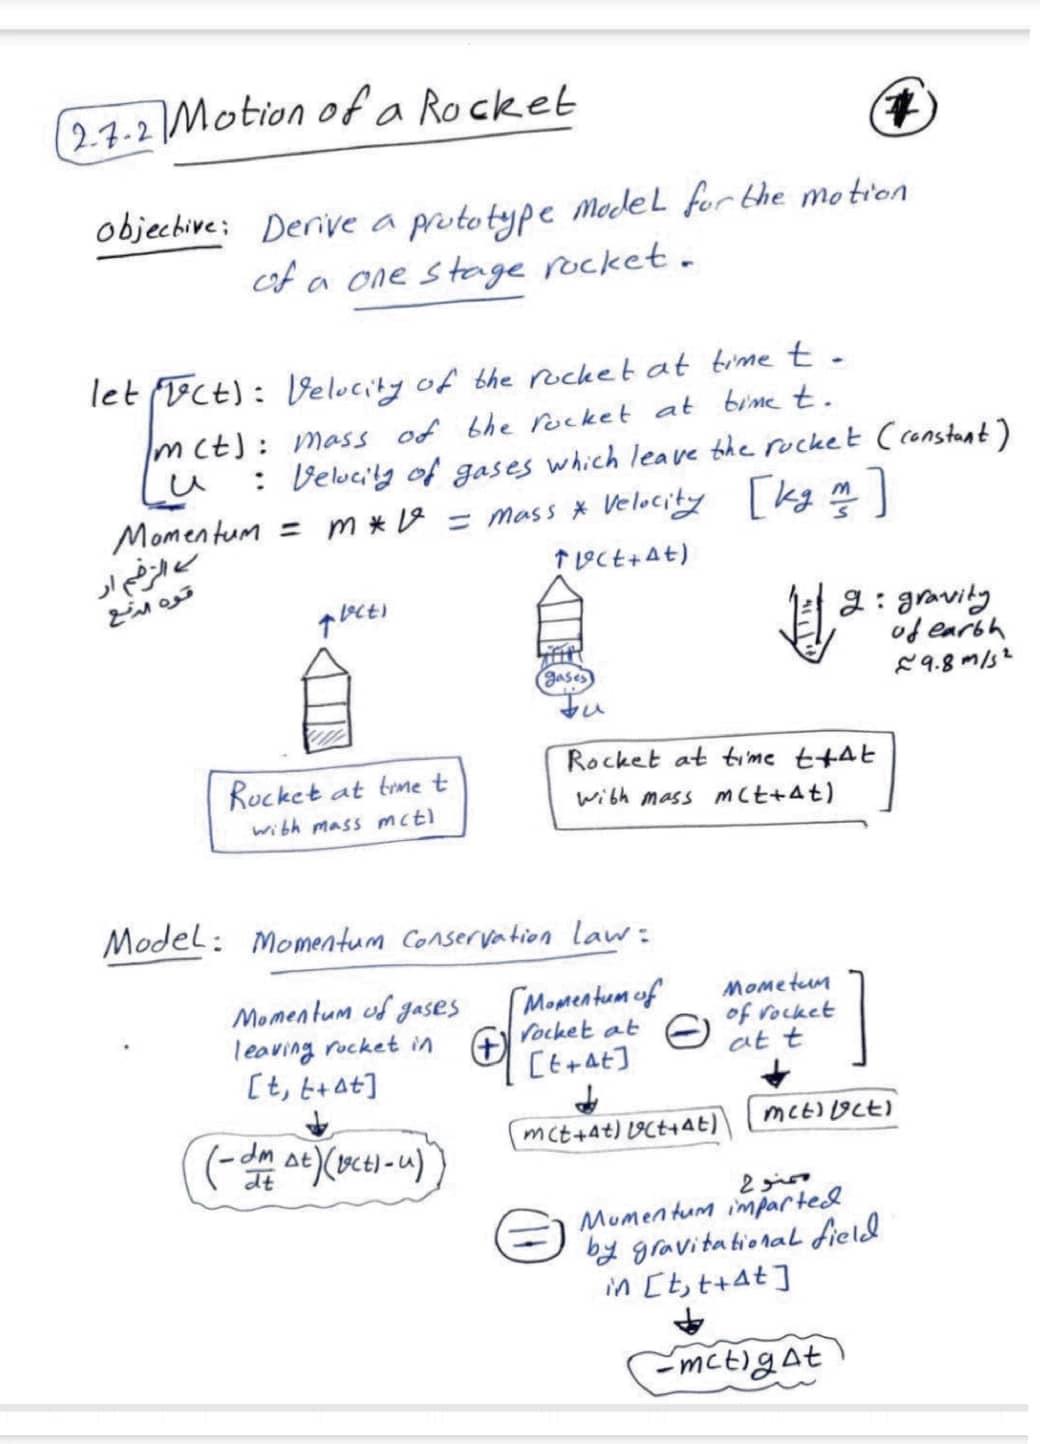 2.7.2 Motion of a Rocket
7
objective: Derive a prototype Model for the motion
of a one stage rocket.
let v(t): Velocity of the rocket at time t.
m(t): mass of the rocket at time t.
u : Velocity of gases which leave the rocket (constant)
Momentum = m * v = mass * Velocity [kg m/s]
الزخم او
قوه الدفع
↑v(t)
↑v(t+Δt)
gases
↓u
g: gravity
of earth
≈ 9.8 m/s²
Rocket at time t
with mass m(t)
Rocket at time t+Δt
with mass m(t+Δt)
Model: Momentum Conservation law:
Momentum of gases
leaving rocket in
[t, t+Δt]
↓
(-dm/dt Δt)(v(t)-u)
+
[Momentum of
rocket at
[t+Δt]
↓
m(t+Δt) v(t+Δt)
-
Mometum
of rocket
at t]
↓
m(t) v(t)
=
Momentum imparted
by gravitational field
in [t, t+Δt]
↓
-m(t)gΔt